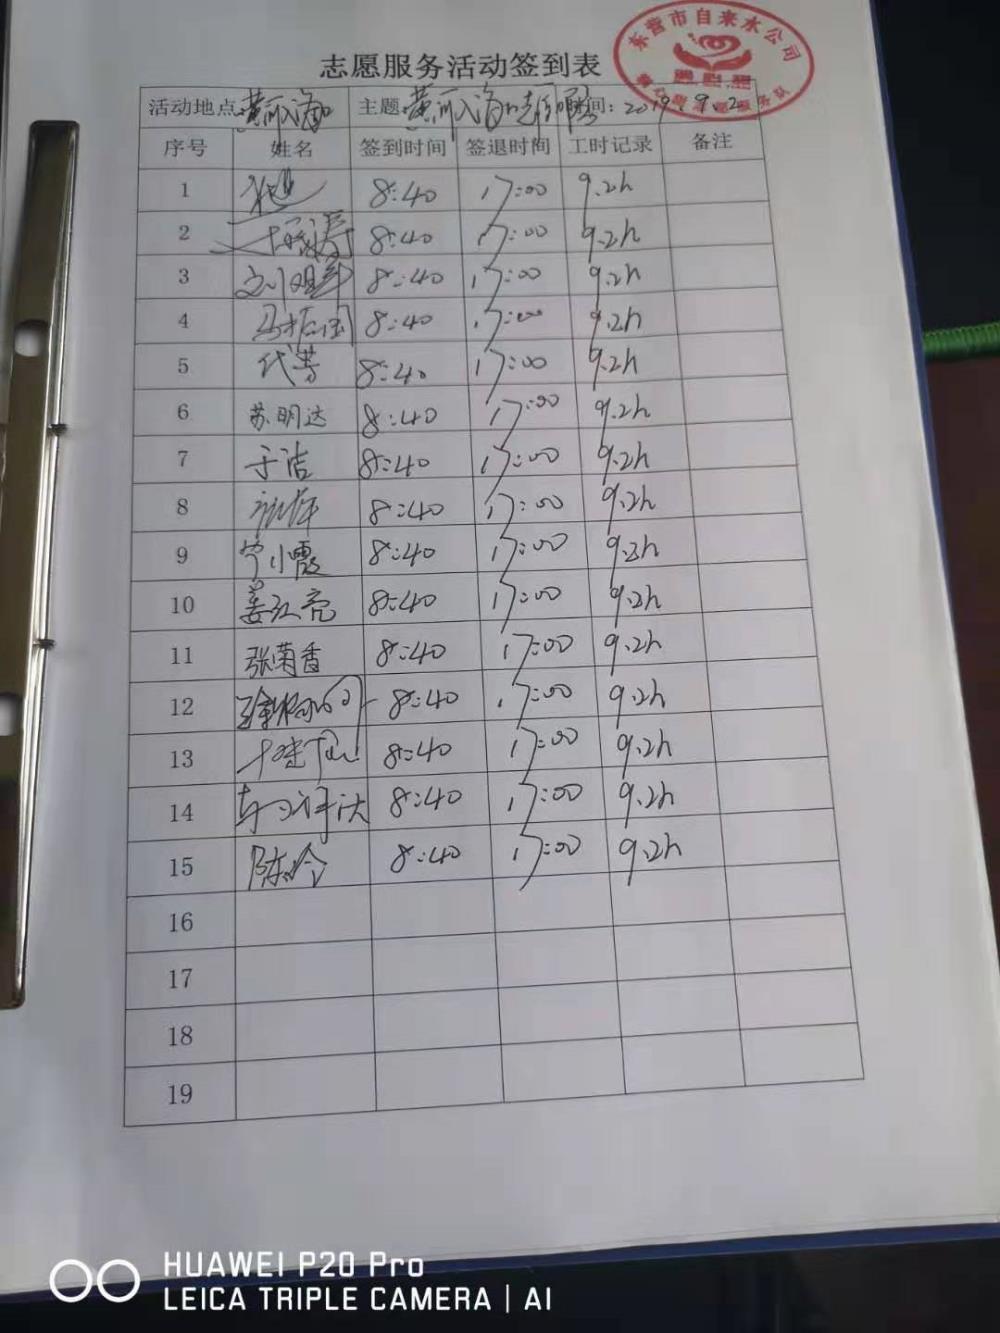 东营市自来水公司
志愿服务活动签到表
活动地点 黄河入海口 主题: 黄河入海口 时间: 2019.9.2
序号 姓名 签到时间 签退时间 工时记录 备注
1 8:40 17:00 9.2h
2 8:40 17:00 9.2h
3 8:40 17:00 9.2h
4 马振国 8:40 17:00 9.2h
5 代芳 8:40 17:00 9.2h
6 苏明达 8:40 17:00 9.2h
7 于洁 8:40 17:00 9.2h
8 8:40 17:00 9.2h
9 小霞 8:40 17:00 9.2h
10 姜红亮 8:40 17:00 9.2h
11 张菊香 8:40 17:00 9.2h
12 8:40 17:00 9.2h
13 8:40 17:00 9.2h
14 8:40 17:00 9.2h
15 陈玲 8:40 17:00 9.2h
16
17
18
19
HUAWEI P20 Pro
LEICA TRIPLE CAMERA | AI